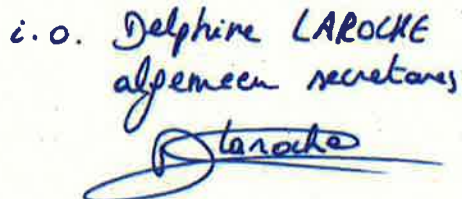 i.o. Delphine LAROCHE
algemeen secretares
Laroche